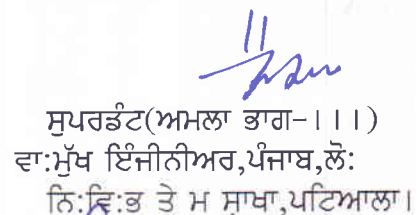 ਸੁਪਰਡੰਟ(ਅਮਲਾ ਭਾਗ-।।।)
ਵਾ:ਮੁੱਖ ਇੰਜੀਨੀਅਰ,ਪੰਜਾਬ,ਲੋ:
ਨਿ:ਵਿ:ਭ ਤੇ ਮ ਸ਼ਾਖਾ,ਪਟਿਆਲਾ।